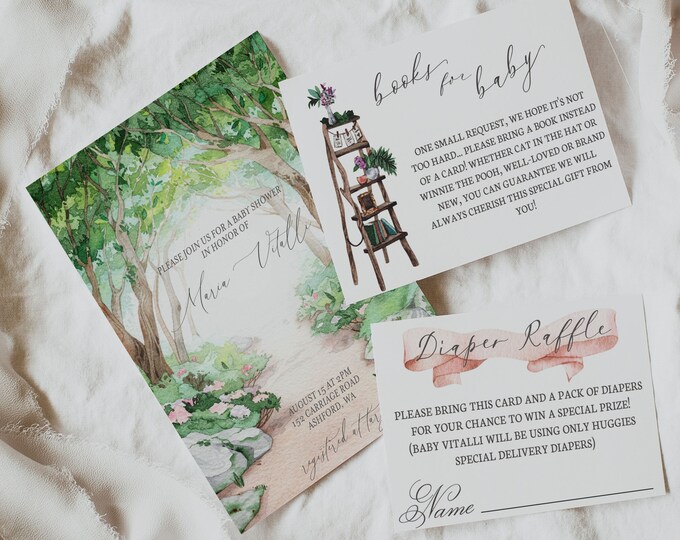 PLEASE JOIN US FOR A BABY SHOWER
IN HONOR OF
Maria Vitalli
AUGUST 15 AT 2PM
152 CARRIAGE ROAD
ASHFORD, WA
registered at
books for baby
ONE SMALL REQUEST, WE HOPE IT'S NOT
TOO HARD... PLEASE BRING A BOOK INSTEAD
OF A CARD! WHETHER CAT IN THE HAT OR
WINNIE THE POOH, WELL-LOVED OR BRAND
NEW, YOU CAN GUARANTEE WE WILL
ALWAYS CHERISH THIS SPECIAL GIFT FROM
YOU!
Diaper Raffle
PLEASE BRING THIS CARD AND A PACK OF DIAPERS
FOR YOUR CHANCE TO WIN A SPECIAL PRIZE!
(BABY VITALLI WILL BE USING ONLY HUGGIES
SPECIAL DELIVERY DIAPERS)
Name